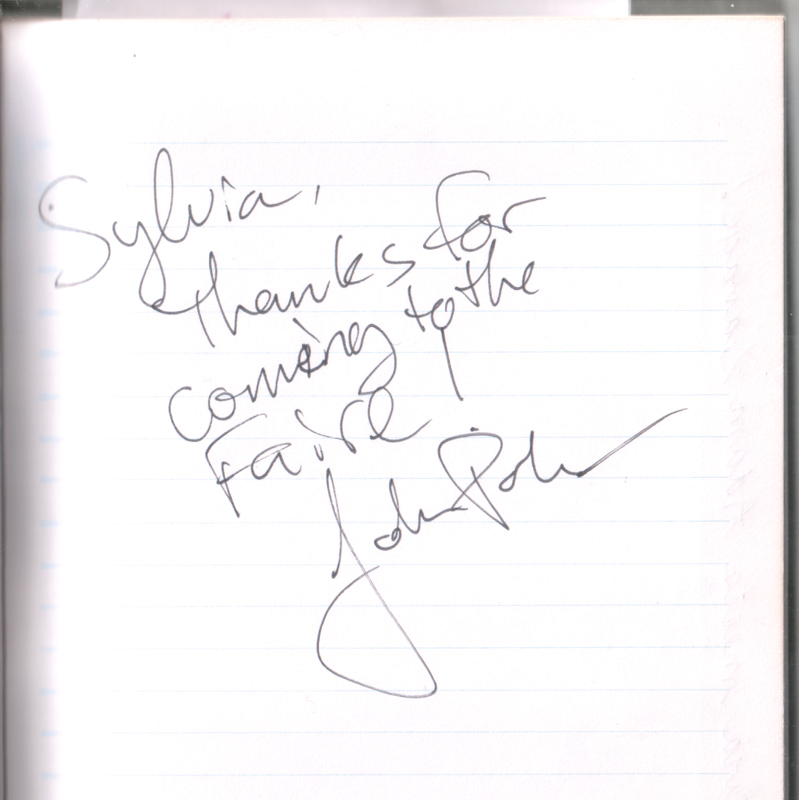 Sylvia,
thanks for
coming to the
Faire
John